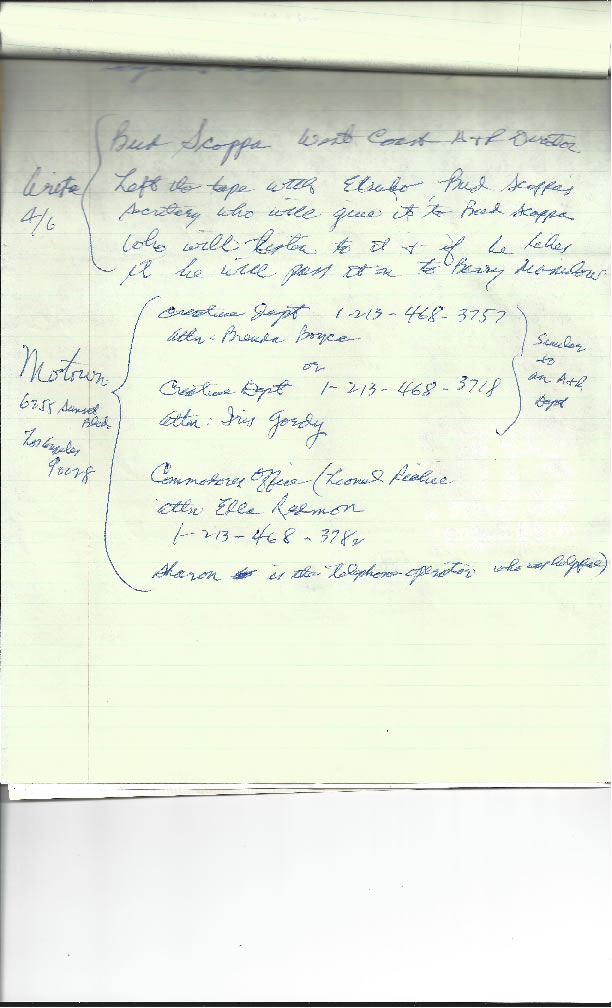 Bud Scoppa West Coast A+R Director
Arista
4/6
Left the tape with Bud Scoppa's
secretary who will give it to Bud Scoppa
who will listen to it + if he likes
it he will pass it on to Barry Manilow
Creative Dept 1-213-468-3757
attn: Brenda Boyce
or
Creative Dept 1-213-468-3718
attn: Iris Gordy
Similar
to
an A+R
Dept
Motown
6255 Sunset
Blvd.
Los Angeles
90028
Commodores Office (Lionel Richie
attn: Ella Redmon
1-213-468-3782
Sharon is the telephone operator who was helpful)